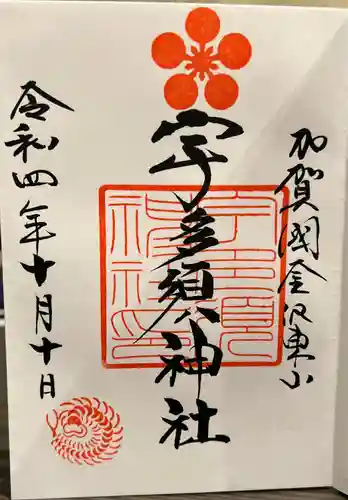 加賀國金沢東山
宇多須神社
令和四年十月十日